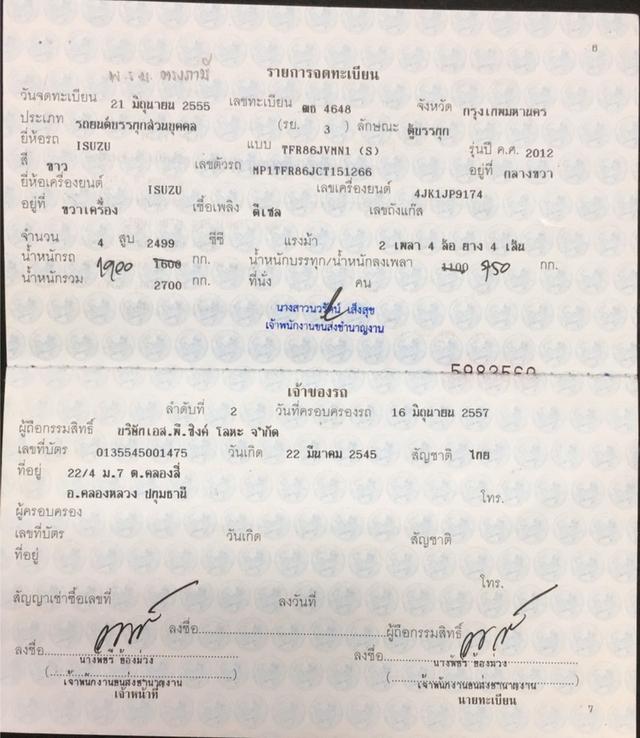 6
พ.ร.บ.
รายการจดทะเบียน
วันจดทะเบียน 21 มิถุนายน 2555 เลขทะเบียน ฒธ 4648 จังหวัด กรุงเทพมหานคร
ประเภท รถยนต์บรรทุกส่วนบุคคล (รย. 3 ) ลักษณะ ตู้บรรทุก
ยี่ห้อรถ ISUZU แบบ TFR86JVMN1 (S) รุ่นปี ค.ศ. 2012
สี ขาว เลขตัวรถ MP1TFR86JCT151266 อยู่ที่ กลางขวา
ยี่ห้อเครื่องยนต์ ISUZU เลขเครื่องยนต์ 4JK1JP9174
อยู่ที่ ขวาเครื่อง เชื้อเพลิง ดีเซล เลขถังแก๊ส
จำนวน 4 สูบ 2499 ซีซี แรงม้า 2 เพลา 4 ล้อ ยาง 4 เส้น
น้ำหนักรถ 1900 1600 กก. น้ำหนักบรรทุก/น้ำหนักลงเพลา 1100 950 กก.
น้ำหนักรวม 2700 กก. ที่นั่ง คน
นางสาวนวรัตน์ เส็งสุข
เจ้าพนักงานขนส่งชำนาญงาน
เจ้าของรถ
ลำดับที่ 2 วันที่ครอบครองรถ 16 มิถุนายน 2557
ผู้ถือกรรมสิทธิ์ บริษัทเอส.พี.ซิงค์ โลหะ จำกัด
เลขที่บัตร 0135545001475 วันเกิด 22 มีนาคม 2545 สัญชาติ ไทย
ที่อยู่ 22/4 ม.7 ต.คลองสี่
อ.คลองหลวง ปทุมธานี โทร.
ผู้ครอบครอง
เลขที่บัตร วันเกิด สัญชาติ
ที่อยู่
โทร.
สัญญาเช่าซื้อเลขที่ ลงวันที่
ลงชื่อ ลงชื่อ ผู้ถือกรรมสิทธิ์
ลงชื่อ
นางพัชรี ช้องม่วง นางพัชรี ช้องม่วง
(เจ้าพนักงานขนส่งชำนาญงาน) (เจ้าพนักงานขนส่งชำนาญงาน)
เจ้าหน้าที่ นายทะเบียน
7